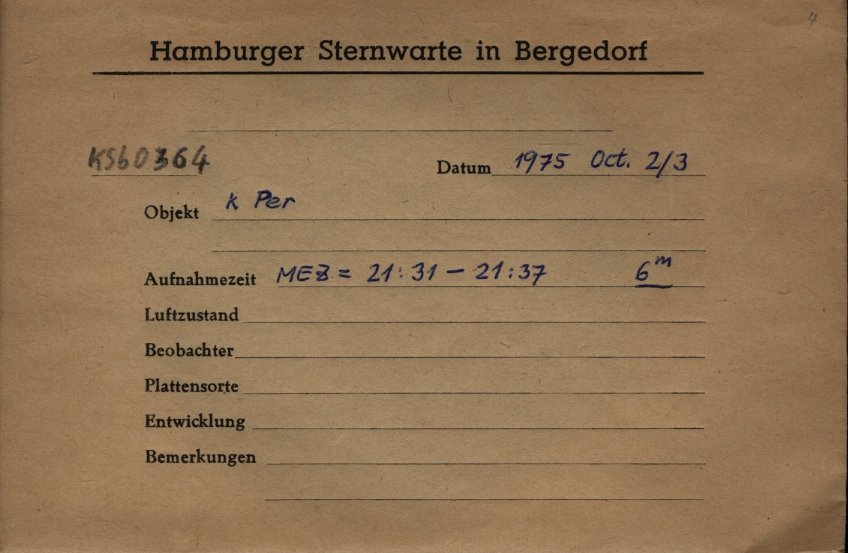 4
Hamburger Sternwarte in Bergedorf
KSb0364 Datum 1975 Oct. 2/3
Objekt K Per
Aufnahmezeit MEZ = 21:31 – 21:37 6ᵐ
Luftzustand
Beobachter
Plattensorte
Entwicklung
Bemerkungen